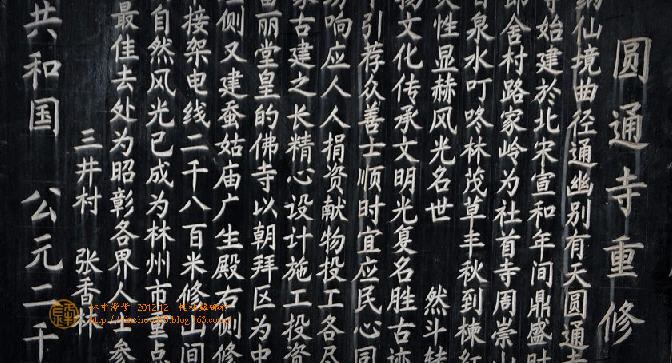 圆通寺重修
仙境曲径通幽别有天圆通
始建於北宋宣和年间鼎盛
舍村路家岭为社首寺周崇山
泉水叮咚林茂草丰秋到楝
性显赫风光名世 然斗转
文化传承文明光复名胜古迹
引荐众善士顺时宜应民心同
响应人人捐资献物投工各尽
古建之长精心设计施工投资
丽堂皇的佛寺以朝拜区为中
侧又建蚕姑庙广生殿右侧修
接架电线二千八百米修山间
自然风光已成为林州市重点
最佳去处为昭彰各界人士参
三井村 张香林
共和国 公元二千